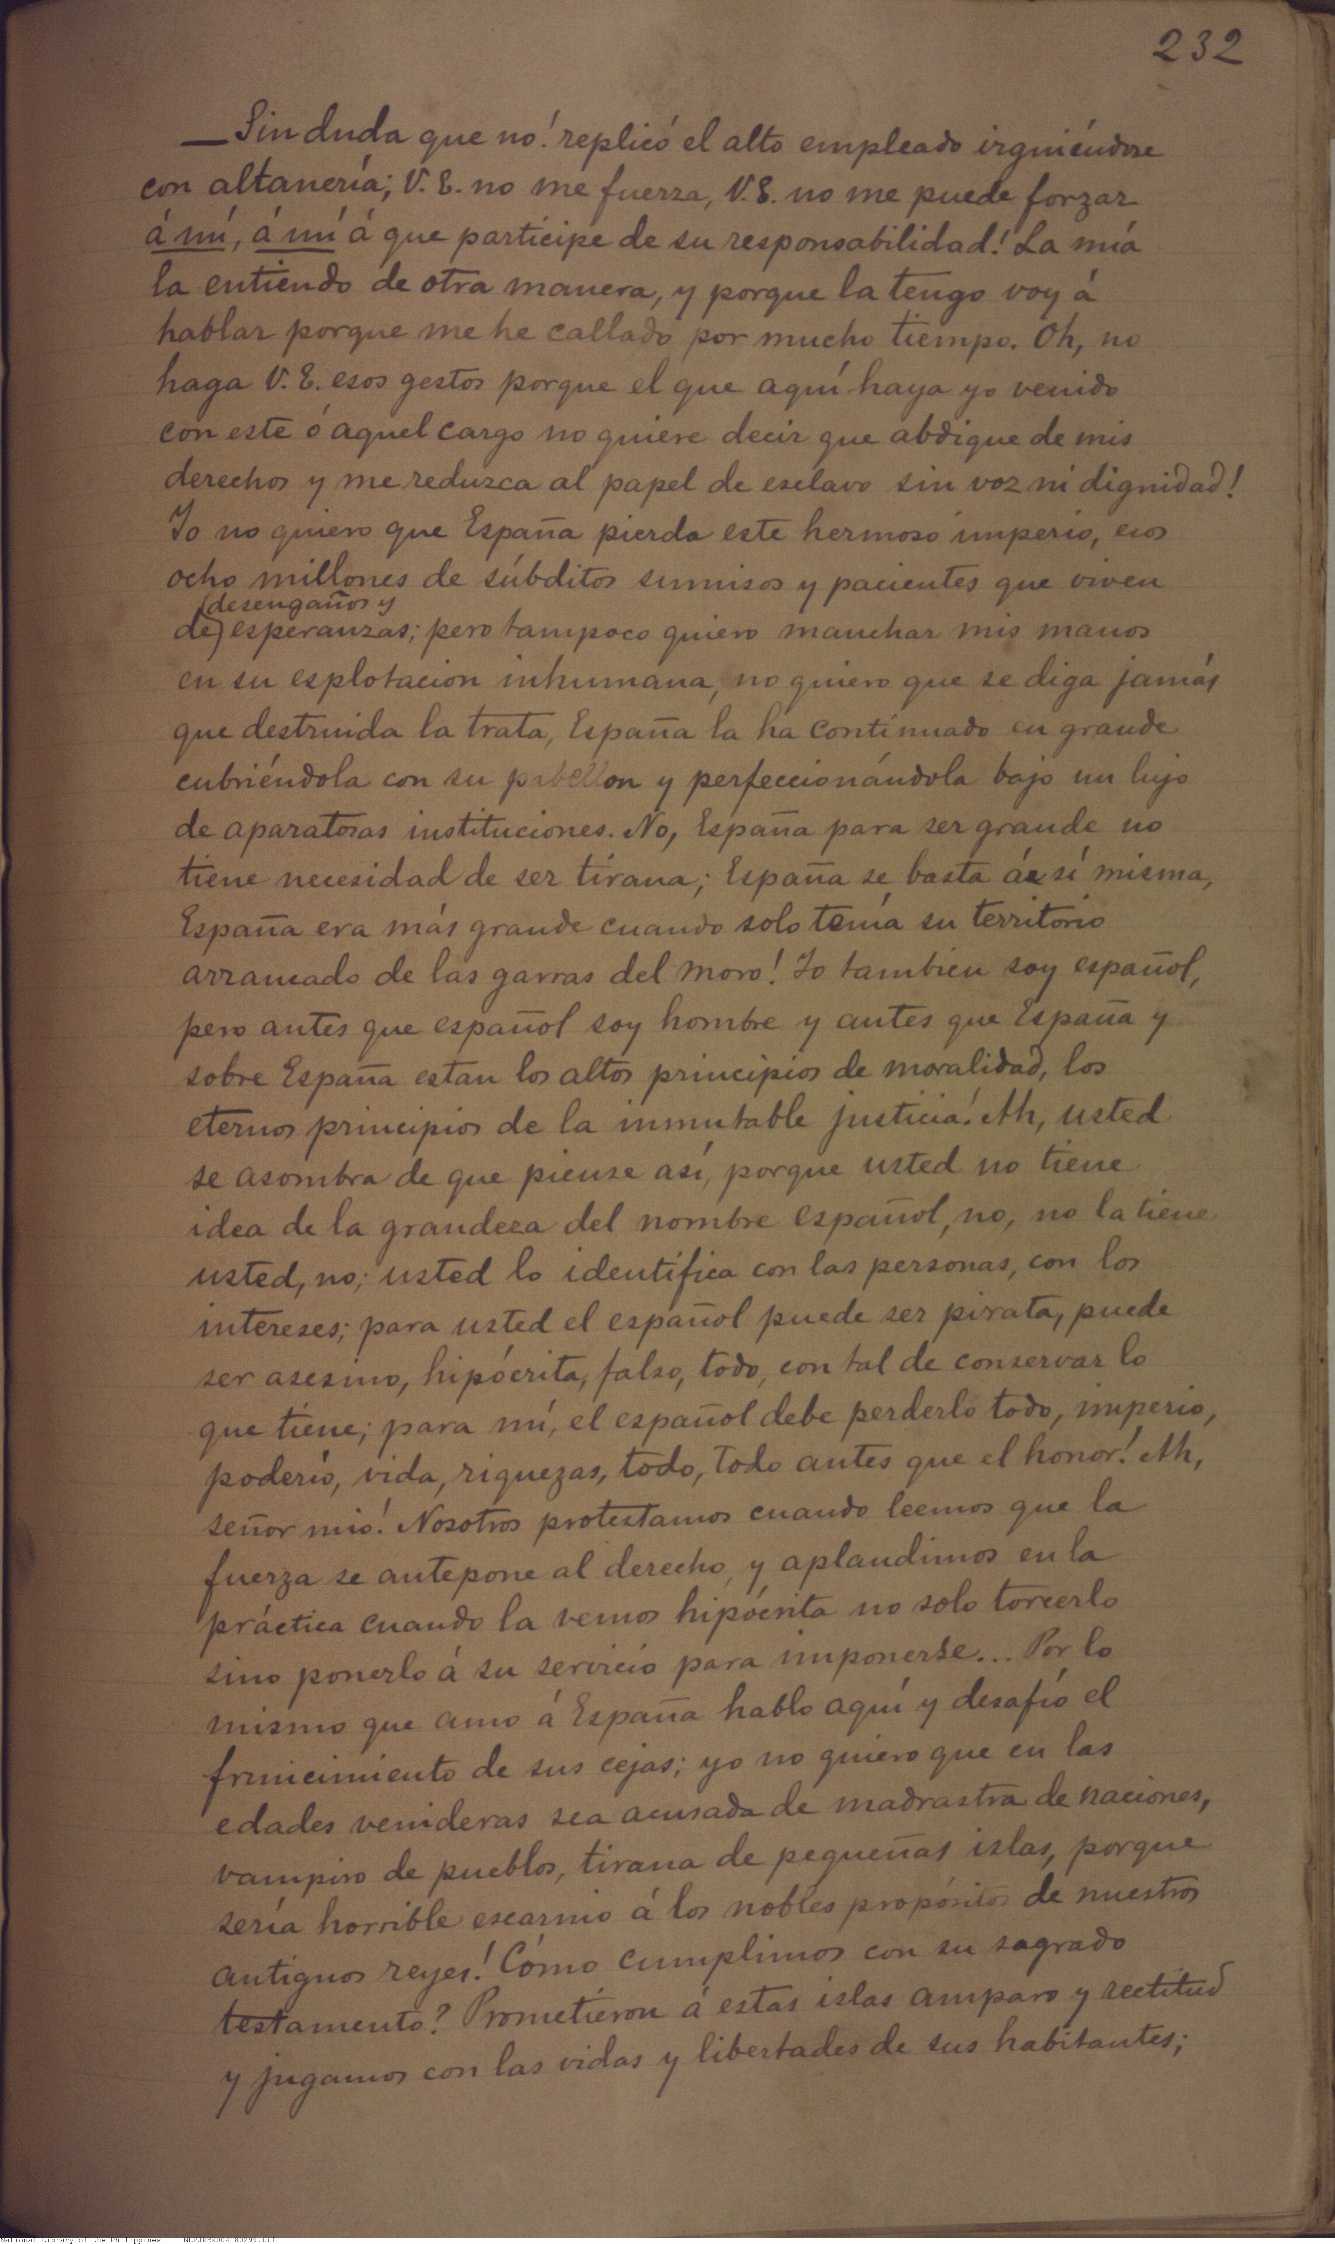 232
— Sin duda que no! replicó el alto empleado irguiéndose
con altanería; V. E. no me fuerza, V. E. no me puede forzar
á mí, á mí á que participe de su responsabilidad! La mía
la entiendo de otra manera, y porque la tengo voy á
hablar porque me he callado por mucho tiempo. Oh, no
haga V. E. esos gestos porque el que aquí haya yo venido
con este ó aquel cargo no quiere decir que abdique de mis
derechos y me reduzca al papel de esclavo sin voz ni dignidad!
Yo no quiero que España pierda este hermoso imperio, esos
ocho millones de súbditos sumisos y pacientes que viven
desengaños y
de esperanzas; pero tampoco quiero manchar mis manos
en su esplotacion inhumana, no quiero que se diga jamás
que destruida la trata, España la ha continuado en grande
cubriéndola con su pabellon y perfeccionándola bajo un lujo
de aparatosas instituciones. No, España para ser grande no
tiene necesidad de ser tirana; España se basta á sí misma,
España era más grande cuando solo tenía su territorio
arrancado de las garras del moro! Yo tambien soy español,
pero antes que español soy hombre y antes que España y
sobre España estan los altos principios de moralidad, los
eternos principios de la inmutable justicia! Ah, usted
se asombra de que piense así, porque usted no tiene
idea de la grandeza del nombre español, no, no la tiene
usted, no; usted lo identifica con las personas, con los
intereses; para usted el español puede ser pirata, puede
ser asesino, hipócrita, falso, todo, con tal de conservar lo
que tiene; para mí, el español debe perderlo todo, imperio,
poderío, vida, riquezas, todo, todo antes que el honor! Ah,
señor mio! Nosotros protestamos cuando leemos que la
fuerza se antepone al derecho, y aplaudimos en la
práctica cuando la vemos hipócrita no solo torcerlo
sino ponerlo á su servicio para imponerse... Por lo
mismo que amo á España hablo aquí y desafío el
fruncimiento de sus cejas; yo no quiero que en las
edades venideras sea acusada de madrastra de naciones,
vampiro de pueblos, tirana de pequeñas islas, porque
sería horrible escarnio á los nobles propósitos de nuestros
antiguos reyes! Cómo cumplimos con su sagrado
testamento? Prometieron á estas islas amparo y rectitud
y jugamos con las vidas y libertades de sus habitantes;